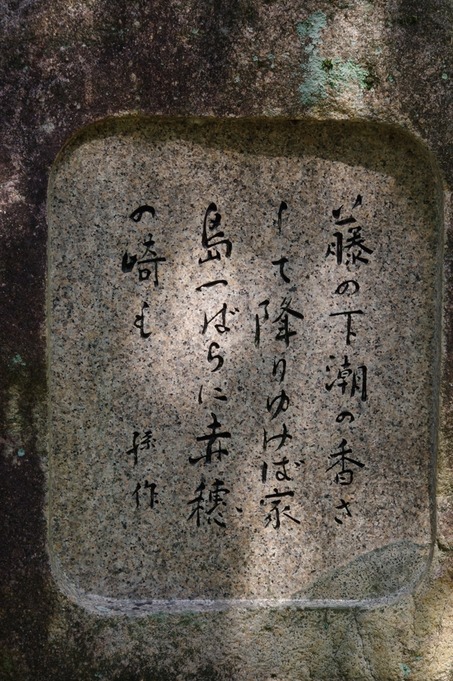 藤の下潮の香さ
して降りゆけば家
島つばらに赤穂
の崎も 孫作